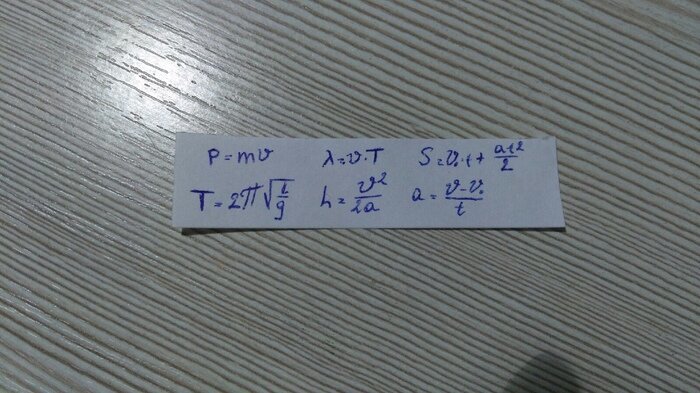 P = mυ λ = υ·T S = υ₀·t + at²/2
T = 2π√(l/g) h = υ²/2a a = (υ-υ₀)/t